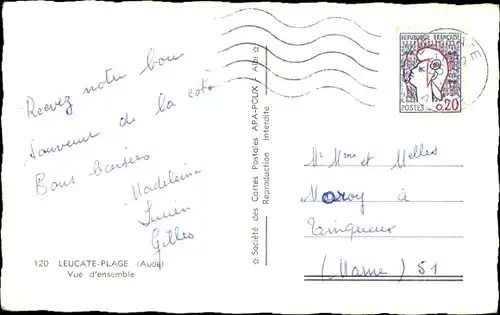 Recevez notre bon
souvenir de la cote
Bons baisers
Madeleine
Lucien
Gilles
120 LEUCATE-PLAGE (Aude)
Vue d'ensemble
☆ Société des Cartes Postales APA-POUX - Albi ☆
Reproduction interdite
REPUBLIQUE FRANÇAISE
POSTES 0,20
Mr Mme et Melles
Maroy à
Tainqueux
(Marne) 51